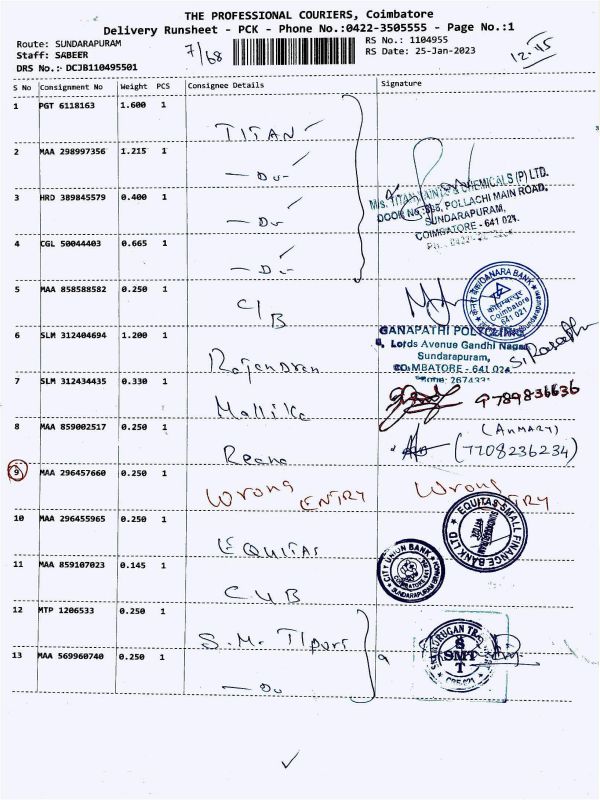 THE PROFESSIONAL COURIERS, Coimbatore
Delivery Runsheet - PCK - Phone No.:0422-3505555 - Page No.:1
Route: SUNDARAPURAM 7/68 RS No.: 1104955
Staff: SABEER RS Date: 25-Jan-2023 12-45
DRS No.: DCJB110495501
S No Consignment No Weight PCS Consignee Details Signature
1 PGT 6118163 1.600 1
TITAN
2 MAA 298997356 1.215 1
— Do —
M/s. TITAN PAINTS & CHEMICALS (P) LTD.
3 HRD 389845579 0.400 1
DOOR NO. 555, POLLACHI MAIN ROAD,
— Do —
SUNDARAPURAM,
COIMBATORE - 641 024.
4 CGL 50044403 0.665 1
— Do —
5 MAA 858588582 0.250 1
C/B
CANARA BANK
कोयम्बत्तूर
Coimbatore
641 021
6 SLM 312404694 1.200 1
GANAPATHI POLYCLINIC
Lords Avenue Gandhi Nagar
Rajendran
Sundarapuram,
COIMBATORE - 641 024
7 SLM 312434435 0.330 1
Mallika
9789836636
8 MAA 859002517 0.250 1
(ANMARY)
Reena
(7708236234)
9 MAA 296457660 0.250 1
Wrong ENTRY Wrong ENTRY
10 MAA 296455965 0.250 1
EQUITAS
EQUITAS SMALL FINANCE BANK LTD
SUNDARAPURAM
11 MAA 859107023 0.145 1
CUB
CITY UNION BANK
SUNDARAPURAM BRANCH
12 MTP 1206533 0.250 1
S.M. Tpurt
13 MAA 569960740 0.250 1
— Do
S
SMT
T